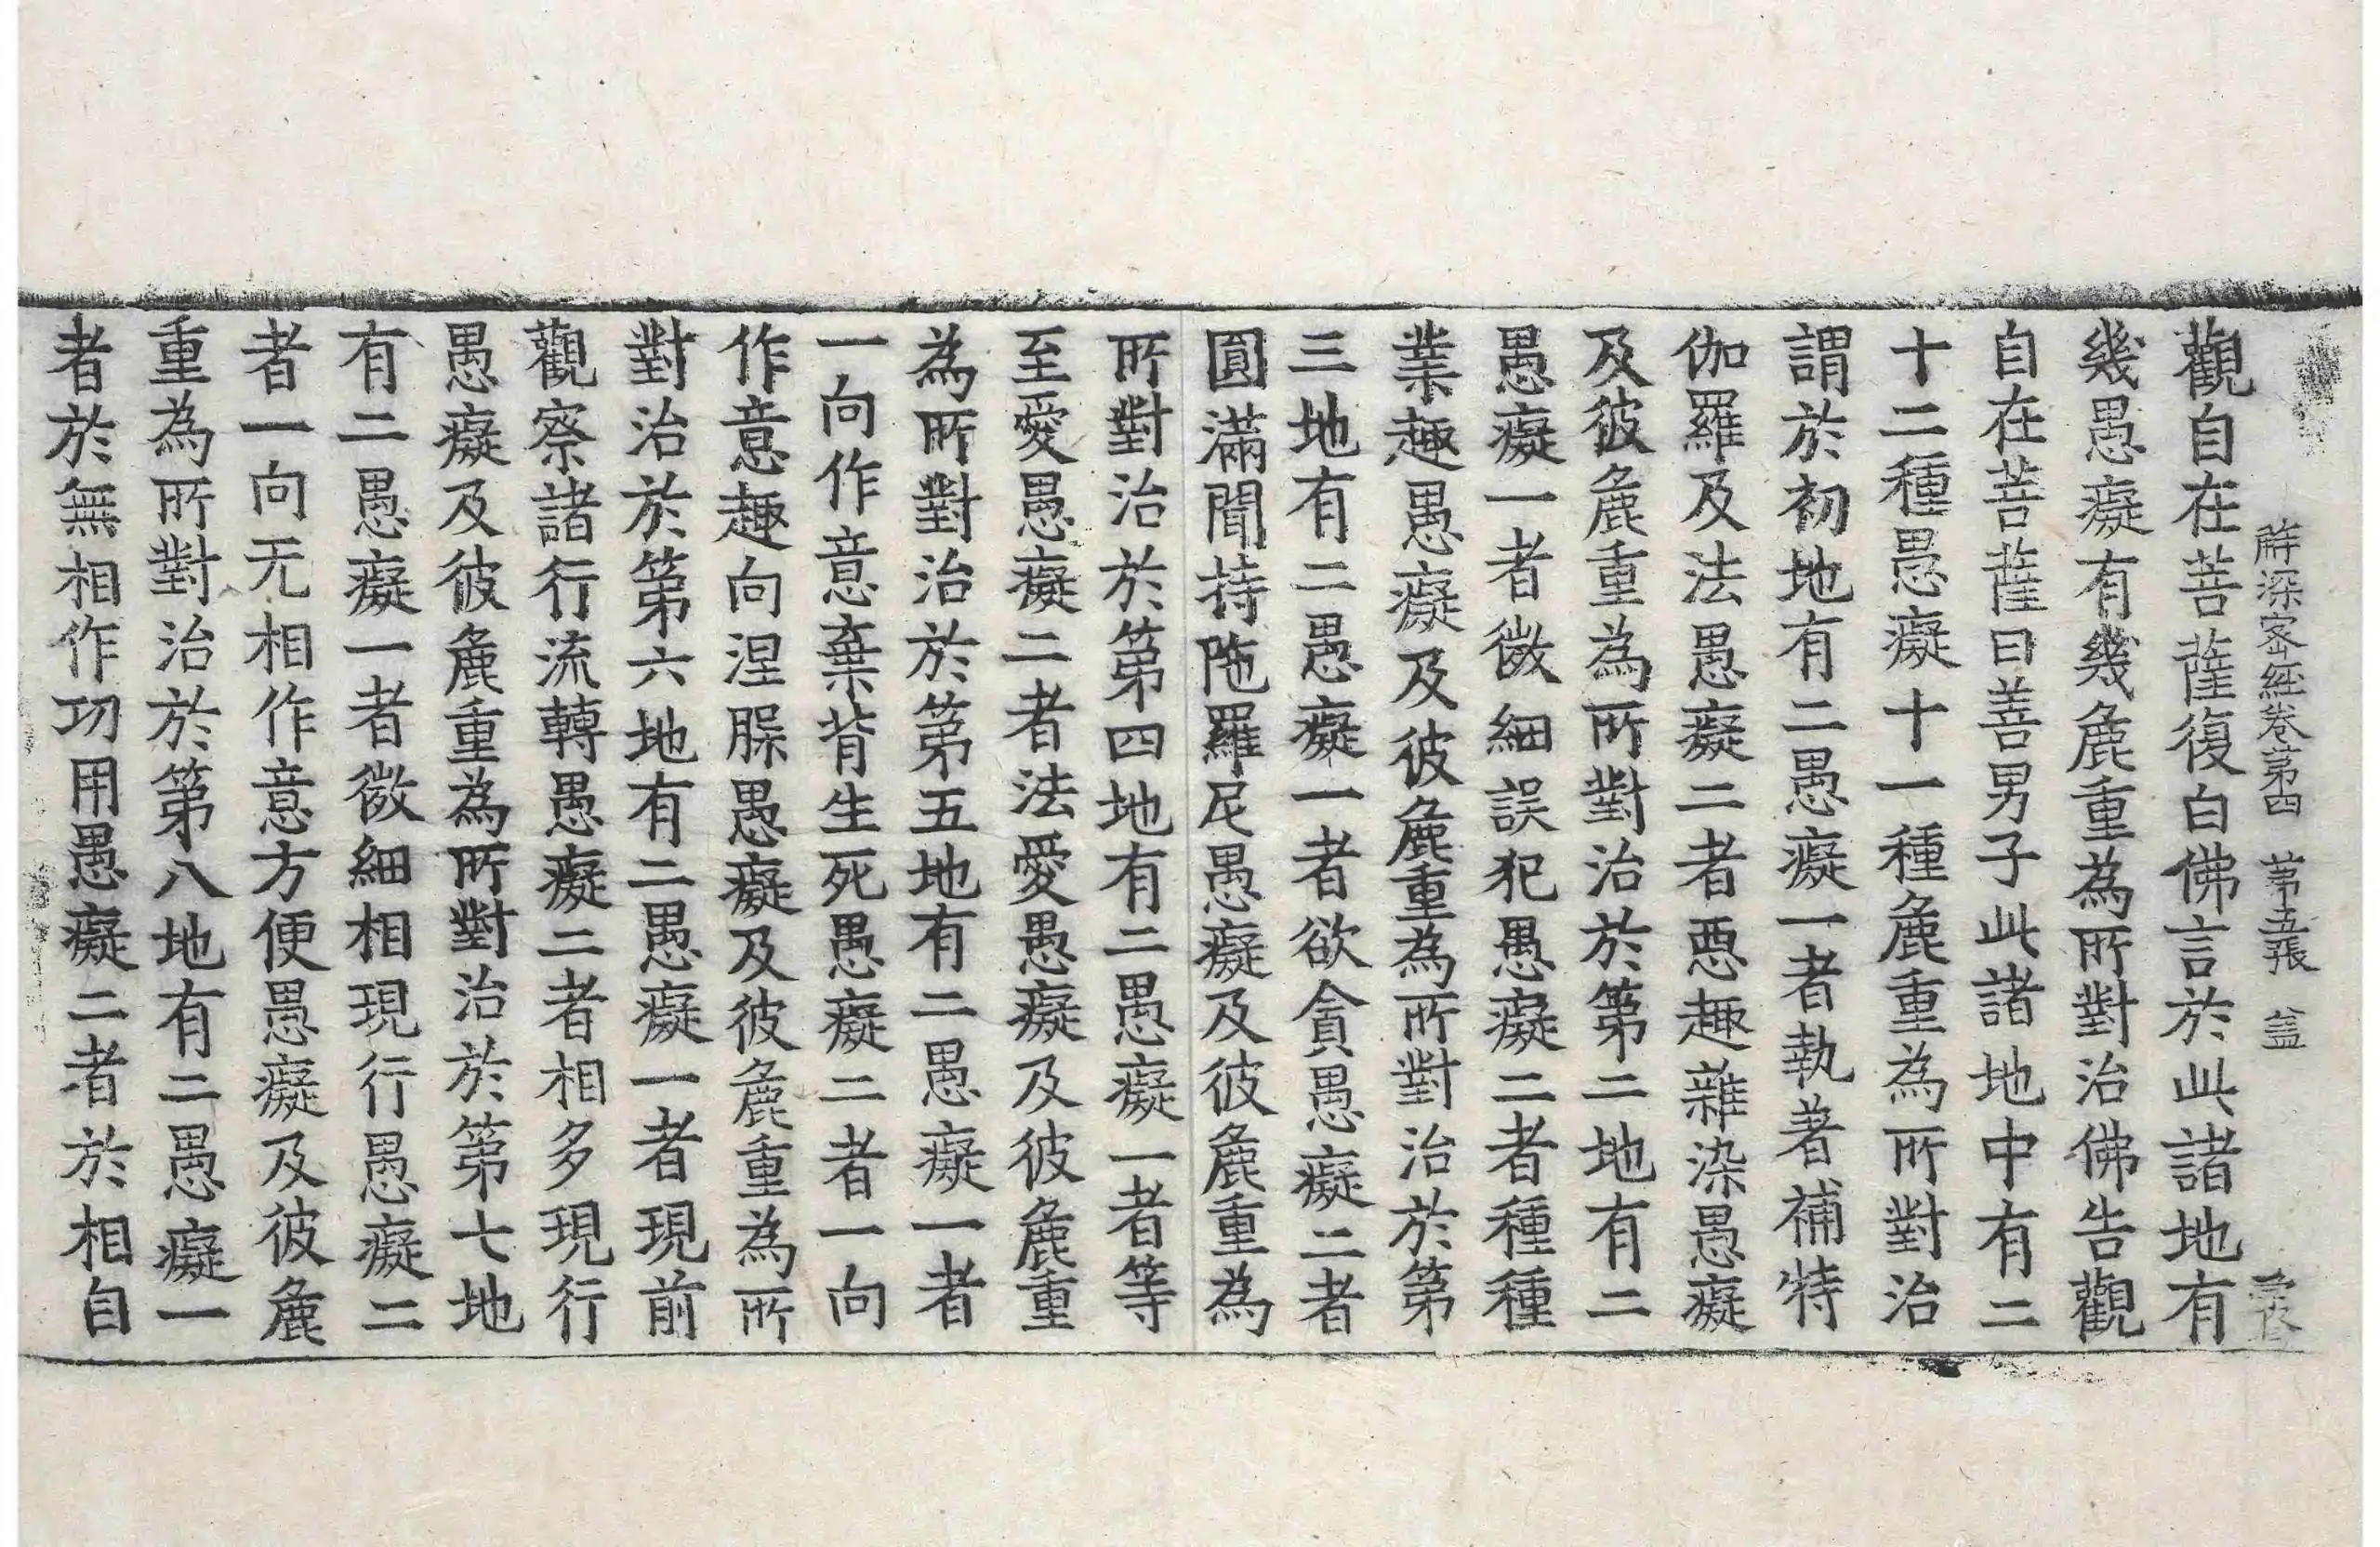 解深密經卷第四 第五張 蓋
觀自在菩薩復白佛言於此諸地有
幾愚癡有幾麁重為所對治佛告觀
自在菩薩曰善男子此諸地中有二
十二種愚癡十一種麁重為所對治
謂於初地有二愚癡一者執著補特
伽羅及法愚癡二者惡趣雜染愚癡
及彼麁重為所對治於第二地有二
愚癡一者微細誤犯愚癡二者種種
業趣愚癡及彼麁重為所對治於第
三地有二愚癡一者欲貪愚癡二者
圓滿聞持陁羅尼愚癡及彼麁重為
所對治於第四地有二愚癡一者等
至愛愚癡二者法愛愚癡及彼麁重
為所對治於第五地有二愚癡一者
一向作意棄背生死愚癡二者一向
作意趣向涅脲愚癡及彼麁重為所
對治於第六地有二愚癡一者現前
觀察諸行流轉愚癡二者相多現行
愚癡及彼麁重為所對治於第七地
有二愚癡一者微細相現行愚癡二
者一向无相作意方便愚癡及彼麁
重為所對治於第八地有二愚癡一
者於無相作功用愚癡二者於相自